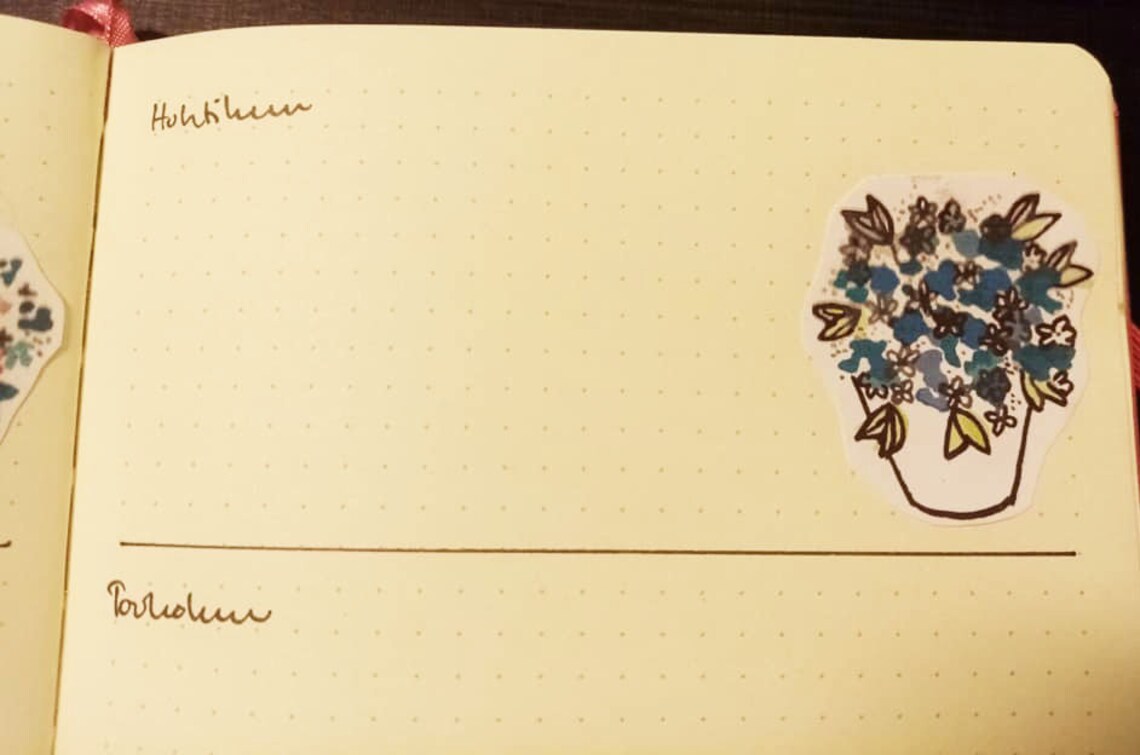 Huhtikuu
Toukokuu